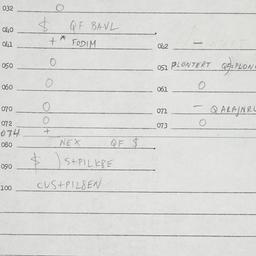 032 O
040 $ QF BAVL
041 + * FODIM 042 —
050 O 051 PLONTERT
060 O 061 O
070 O 071 — QARAJNRL
072 O 073 O
074 +
080 NEX QF $
090 $ ) S+PILKBE
100 CUS+PILBEN